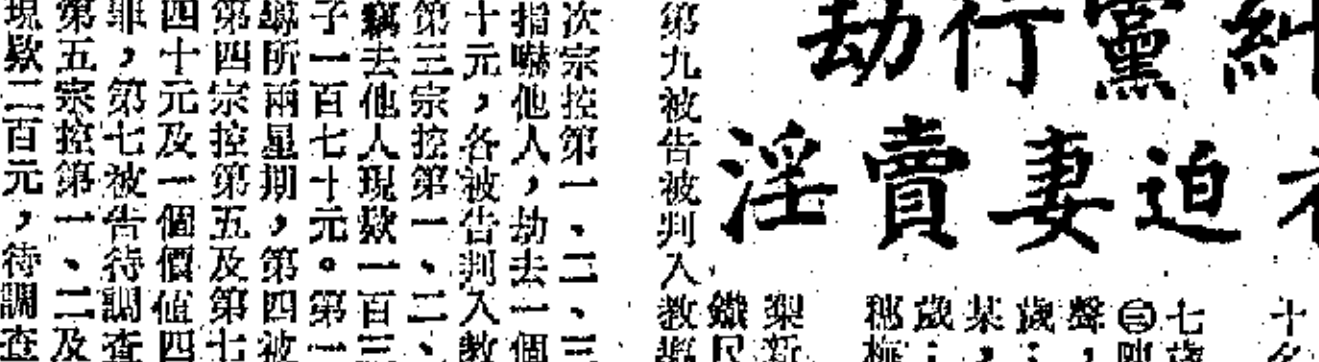 糾黨行劫
迫妻賣淫
十
七歲
㊂陳
聲，
歲；
某，
歲；
穗梅
新
鐵尺
第九被告被判入教
次宗控第一、二、三
指嚇他人，劫去一個
十元，各被告判入教
第三宗控第一、二、
竊去他人現款一百三
子一百七十元。第一
導所兩星期，第四被
第四宗控第五及第七
四十元及一個價值四
罪，第七被告待調查
第五宗控第一、二及
現款二百元，待調查